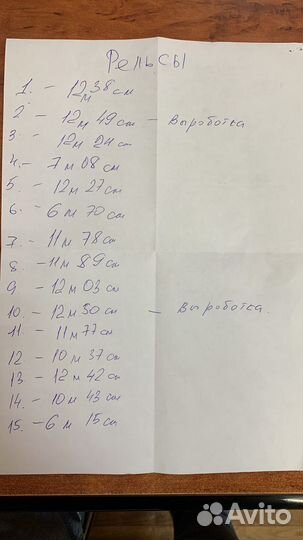 Рельсы
1. - 12м 38см
2 - 12м 49см - Выроботка
3 - 12м 24см
4. - 7м 08см
5. - 12м 27см
6. - 6м 70см
7. - 11м 78см
8. - 11м 89см
9 - 12м 03см
10. - 12м 50см - Выроботка.
11. - 11м 77см
12. - 10м 37см
13. - 12м 42см
14. - 10м 43см
15. - 6м 15см
Avito